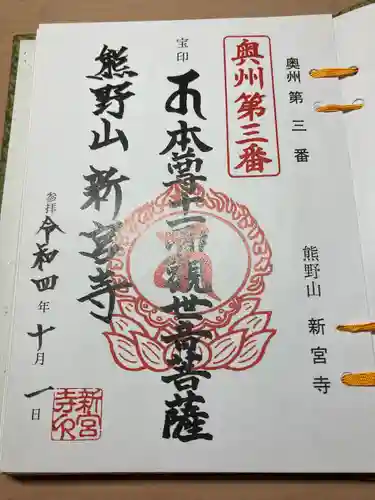 奥州第三番
熊野山 新宮寺
奥州第三番
宝印
本尊十一面観世音菩薩
熊野山 新宮寺
参拝 令和四年十月一日
新宮
寺印